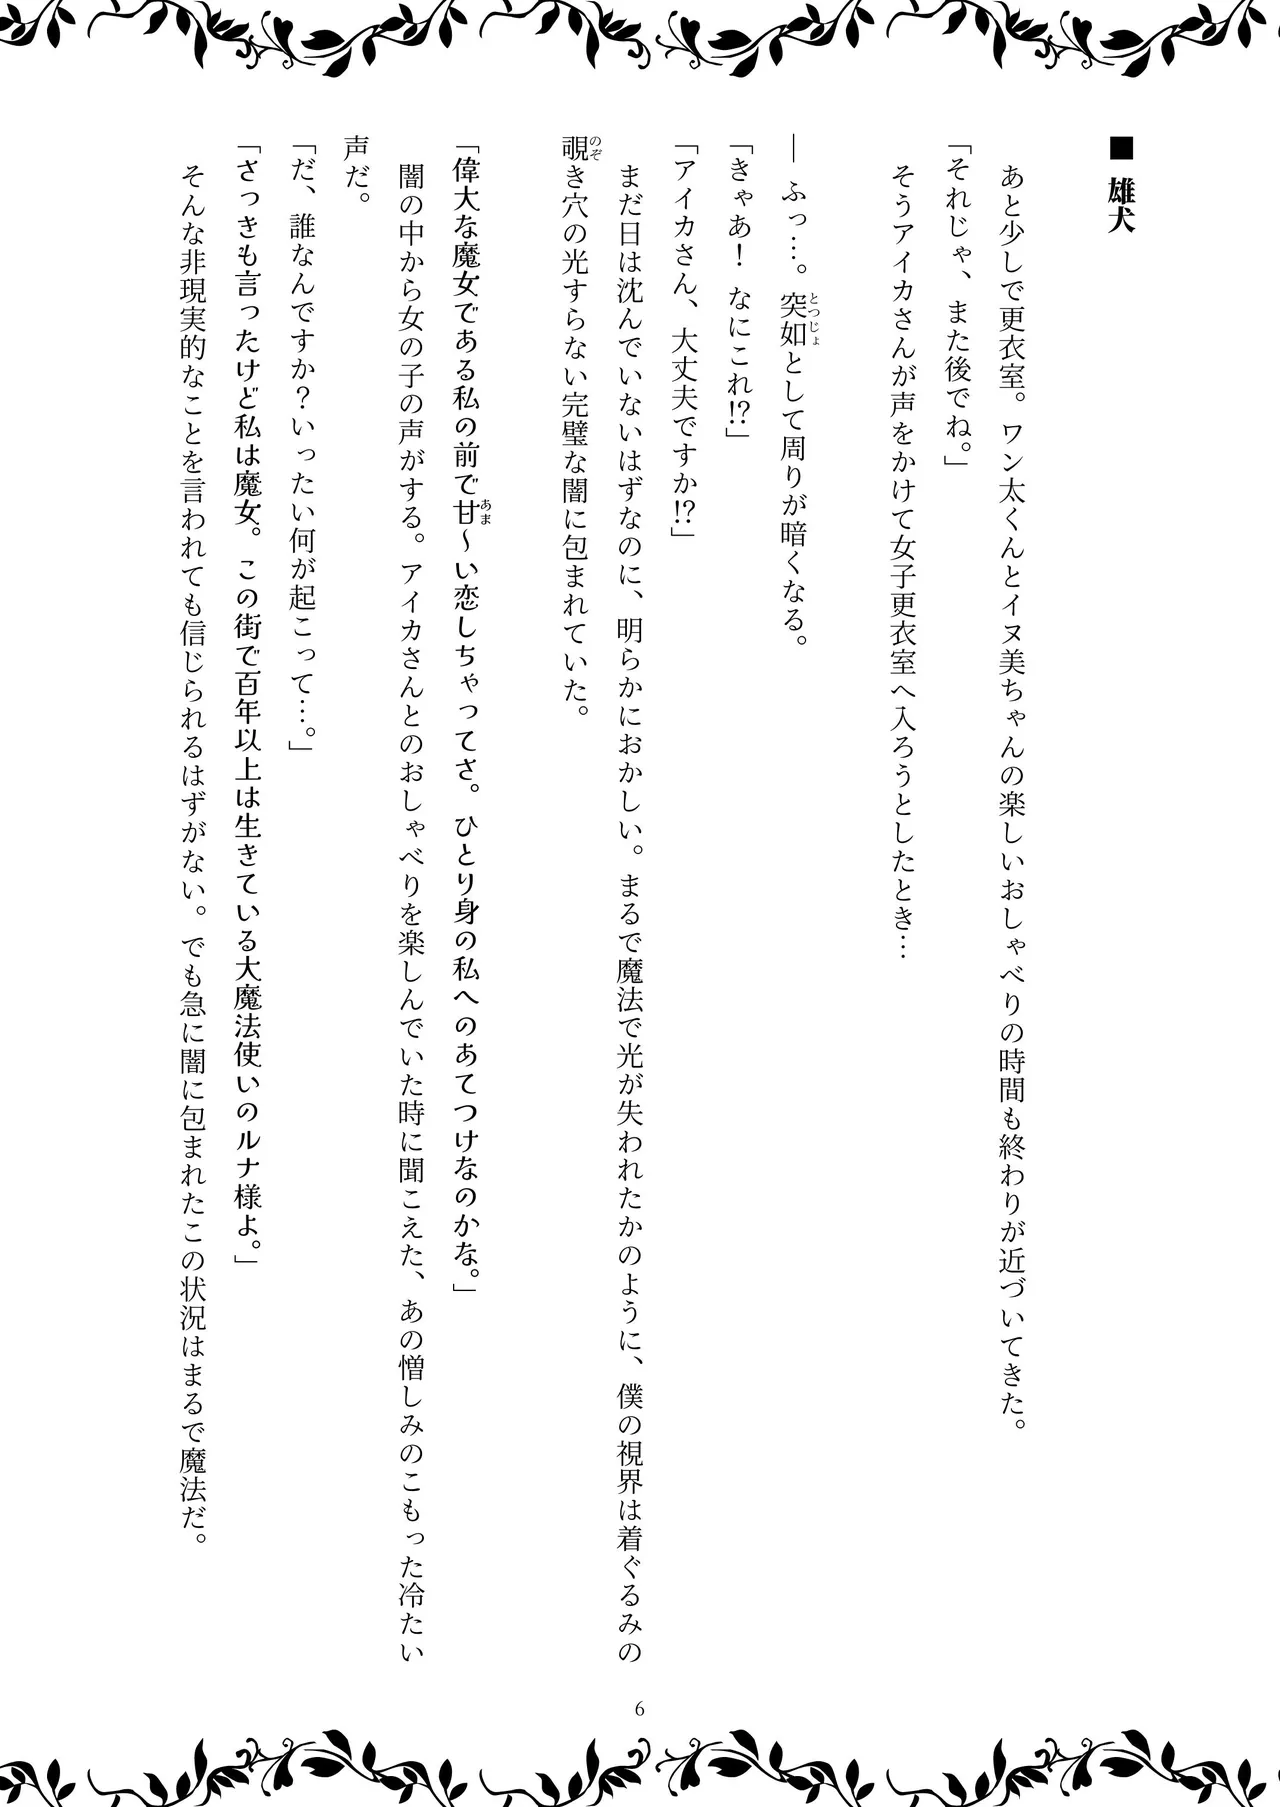 ■ 雄犬
あと少しで更衣室。ワン太くんとイヌ美ちゃんの楽しいおしゃべりの時間も終わりが近づいてきた。
「それじゃ、また後でね。」
そうアイカさんが声をかけて女子更衣室へ入ろうとしたとき…
― ふっ…。突如として周りが暗くなる。
「きゃあ！ なにこれ!?」
「アイカさん、大丈夫ですか!?」
まだ日は沈んでいないはずなのに、明らかにおかしい。まるで魔法で光が失われたかのように、僕の視界は着ぐるみの
覗き穴の光すらない完璧な闇に包まれていた。
「偉大な魔女である私の前で甘～い恋しちゃってさ。ひとり身の私へのあてつけなのかな。」
闇の中から女の子の声がする。アイカさんとのおしゃべりを楽しんでいた時に聞こえた、あの憎しみのこもった冷たい
声だ。
「だ、誰なんですか？いったい何が起こって…。」
「さっきも言ったけど私は魔女。この街で百年以上は生きている大魔法使いのルナ様よ。」
そんな非現実的なことを言われても信じられるはずがない。でも急に闇に包まれたこの状況はまるで魔法だ。
6